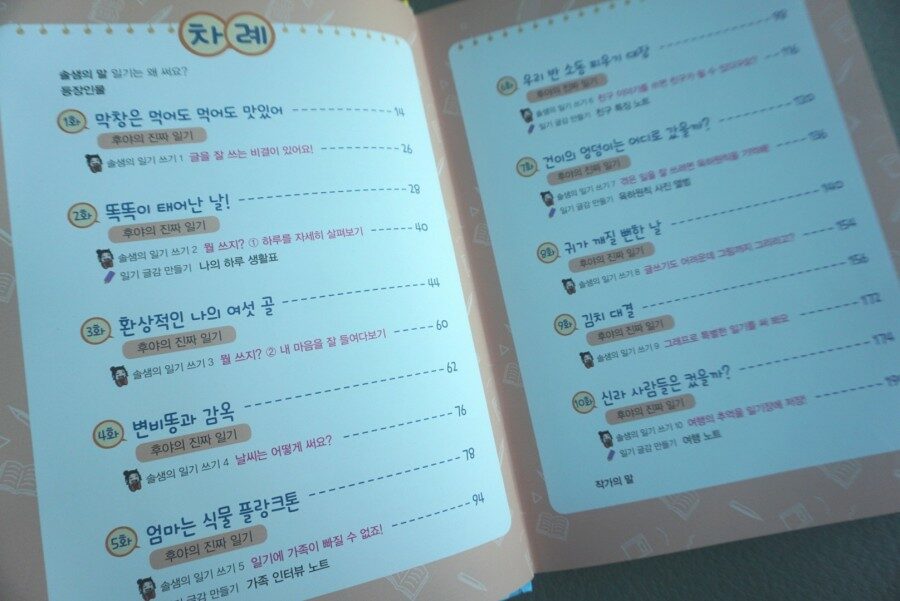 차례
솔샘의 말 일기는 왜 써요?
등장인물
1화 막창은 먹어도 먹어도 맛있어 14
후야의 진짜 일기
솔샘의 일기 쓰기 1 글을 잘 쓰는 비결이 있어요! 26
2화 똑똑이 태어난 날! 28
후야의 진짜 일기
솔샘의 일기 쓰기 2 뭘 쓰지? ① 하루를 자세히 살펴보기 40
일기 글감 만들기 나의 하루 생활표
3화 환상적인 나의 여섯 골 44
후야의 진짜 일기
솔샘의 일기 쓰기 3 뭘 쓰지? ② 내 마음을 잘 들여다보기 60
4화 변비똥과 감옥 62
후야의 진짜 일기
솔샘의 일기 쓰기 4 날씨는 어떻게 써요? 76
5화 엄마는 식물 플랑크톤 78
후야의 진짜 일기
솔샘의 일기 쓰기 5 일기에 가족이 빠질 수 없죠! 94
일기 글감 만들기 가족 인터뷰 노트
6화 우리 반 소동 피우기 대장 98
후야의 진짜 일기
솔샘의 일기 쓰기 6 친구 이야기를 쓰면 친구가 될 수 있다구요? 116
일기 글감 만들기 친구 특징 노트
7화 건이의 엉덩이는 어디로 갔을까? 120
후야의 진짜 일기
솔샘의 일기 쓰기 7 겪은 일을 잘 쓰려면 육하원칙을 기억해 136
일기 글감 만들기 육하원칙 사진 앨범
8화 귀가 깨질 뻔한 날 140
후야의 진짜 일기
솔샘의 일기 쓰기 8 글쓰기도 어려운데 그림까지 그리라고? 154
9화 김치 대결 156
후야의 진짜 일기
솔샘의 일기 쓰기 9 그래프로 특별한 일기를 써 봐요 172
10화 신라 사람들은 컸을까? 174
후야의 진짜 일기
솔샘의 일기 쓰기 10 여행의 추억을 일기장에 저장!
일기 글감 만들기 여행 노트
작가의 말